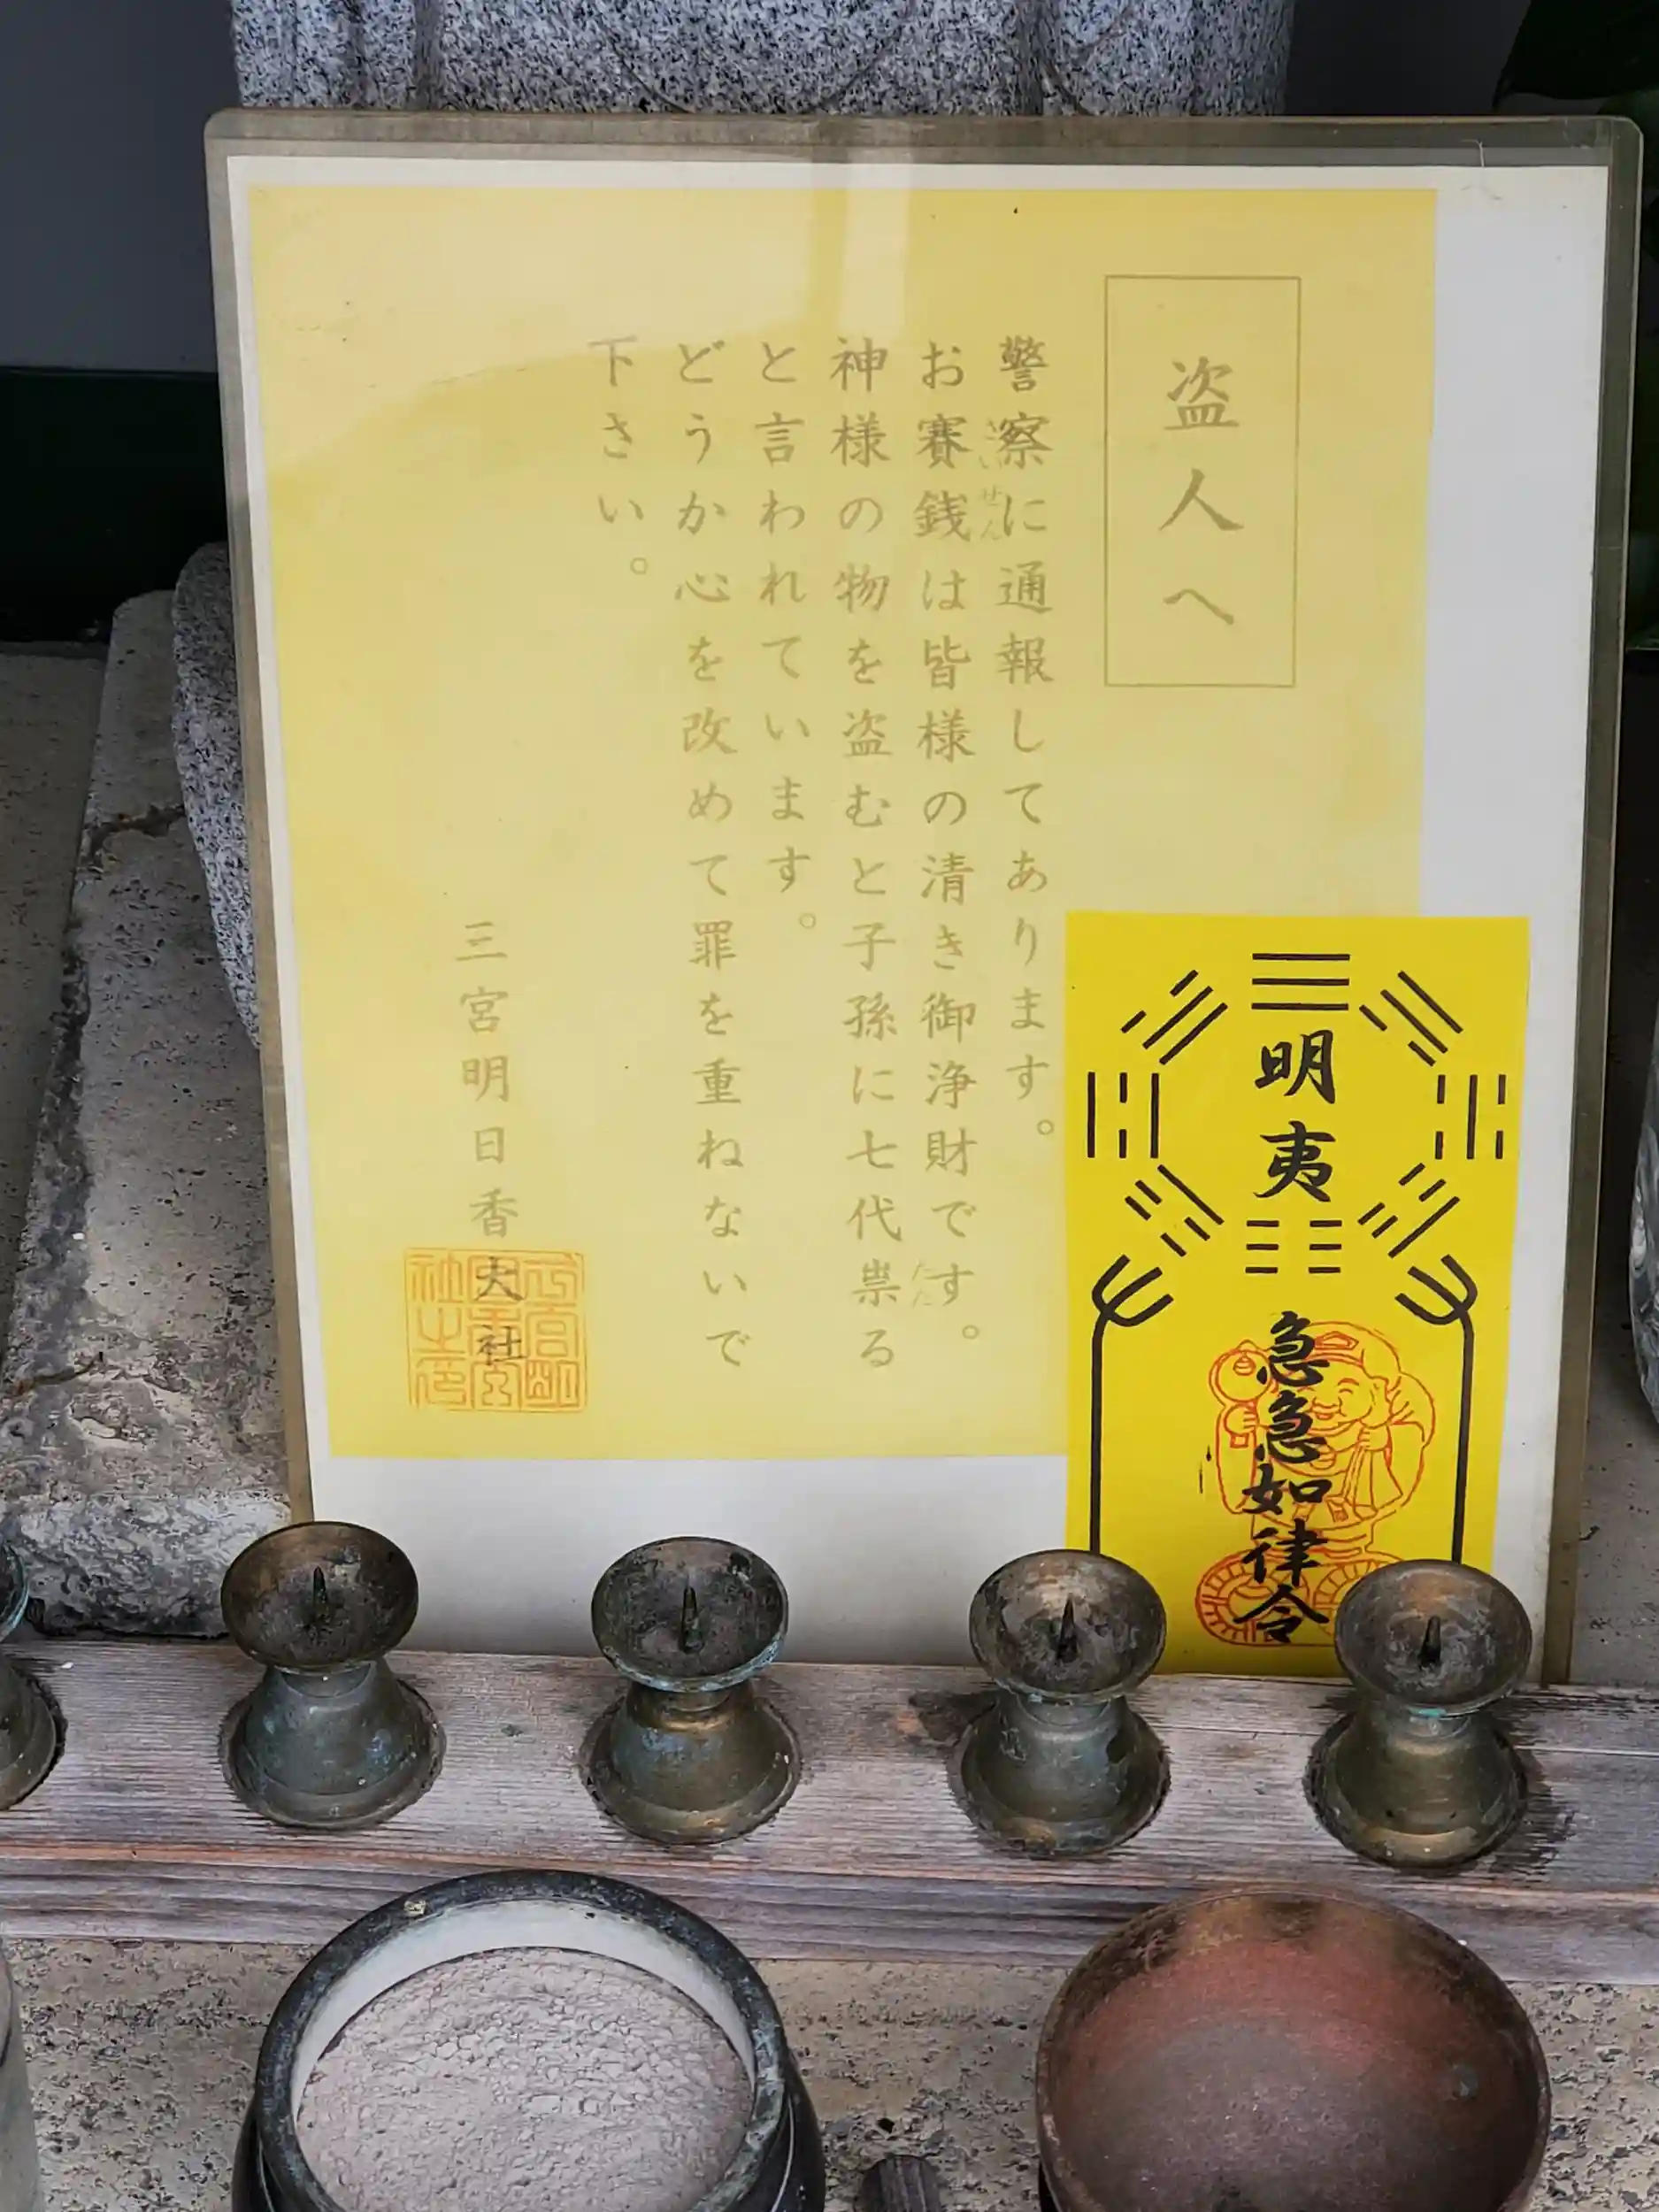 盗人へ
警察に通報してあります。
お賽銭は皆様の清き御浄財です。
さいせん
神様の物を盗むと子孫に七代祟る
たた
と言われています。
どうか心を改めて罪を重ねないで
下さい。
三宮明日香大社
明夷
急急如律令